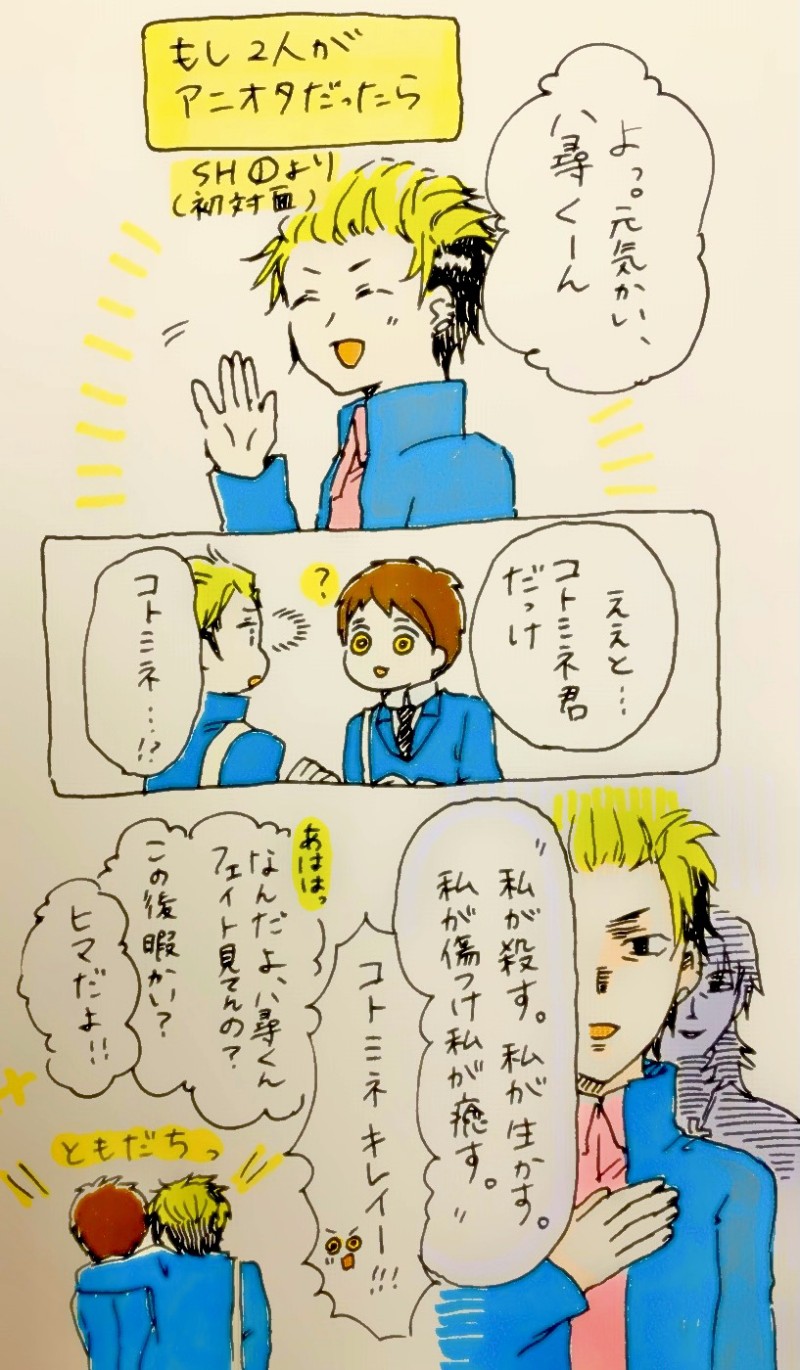 もし2人が
アニオタだったら
SH①より
(初対面)
よっ。元気かい、
八尋くーん
ええと…
コトミネ君
だっけ
?
コトミネ…!?
"私が殺す。私が生かす。
私が傷つけ私が癒す。"
コトミネ キレイー!!!
あははっ
なんだよ、八尋くん
フェイト見てんの?
この後暇かい?
ヒマだよ!!
ともだちっ